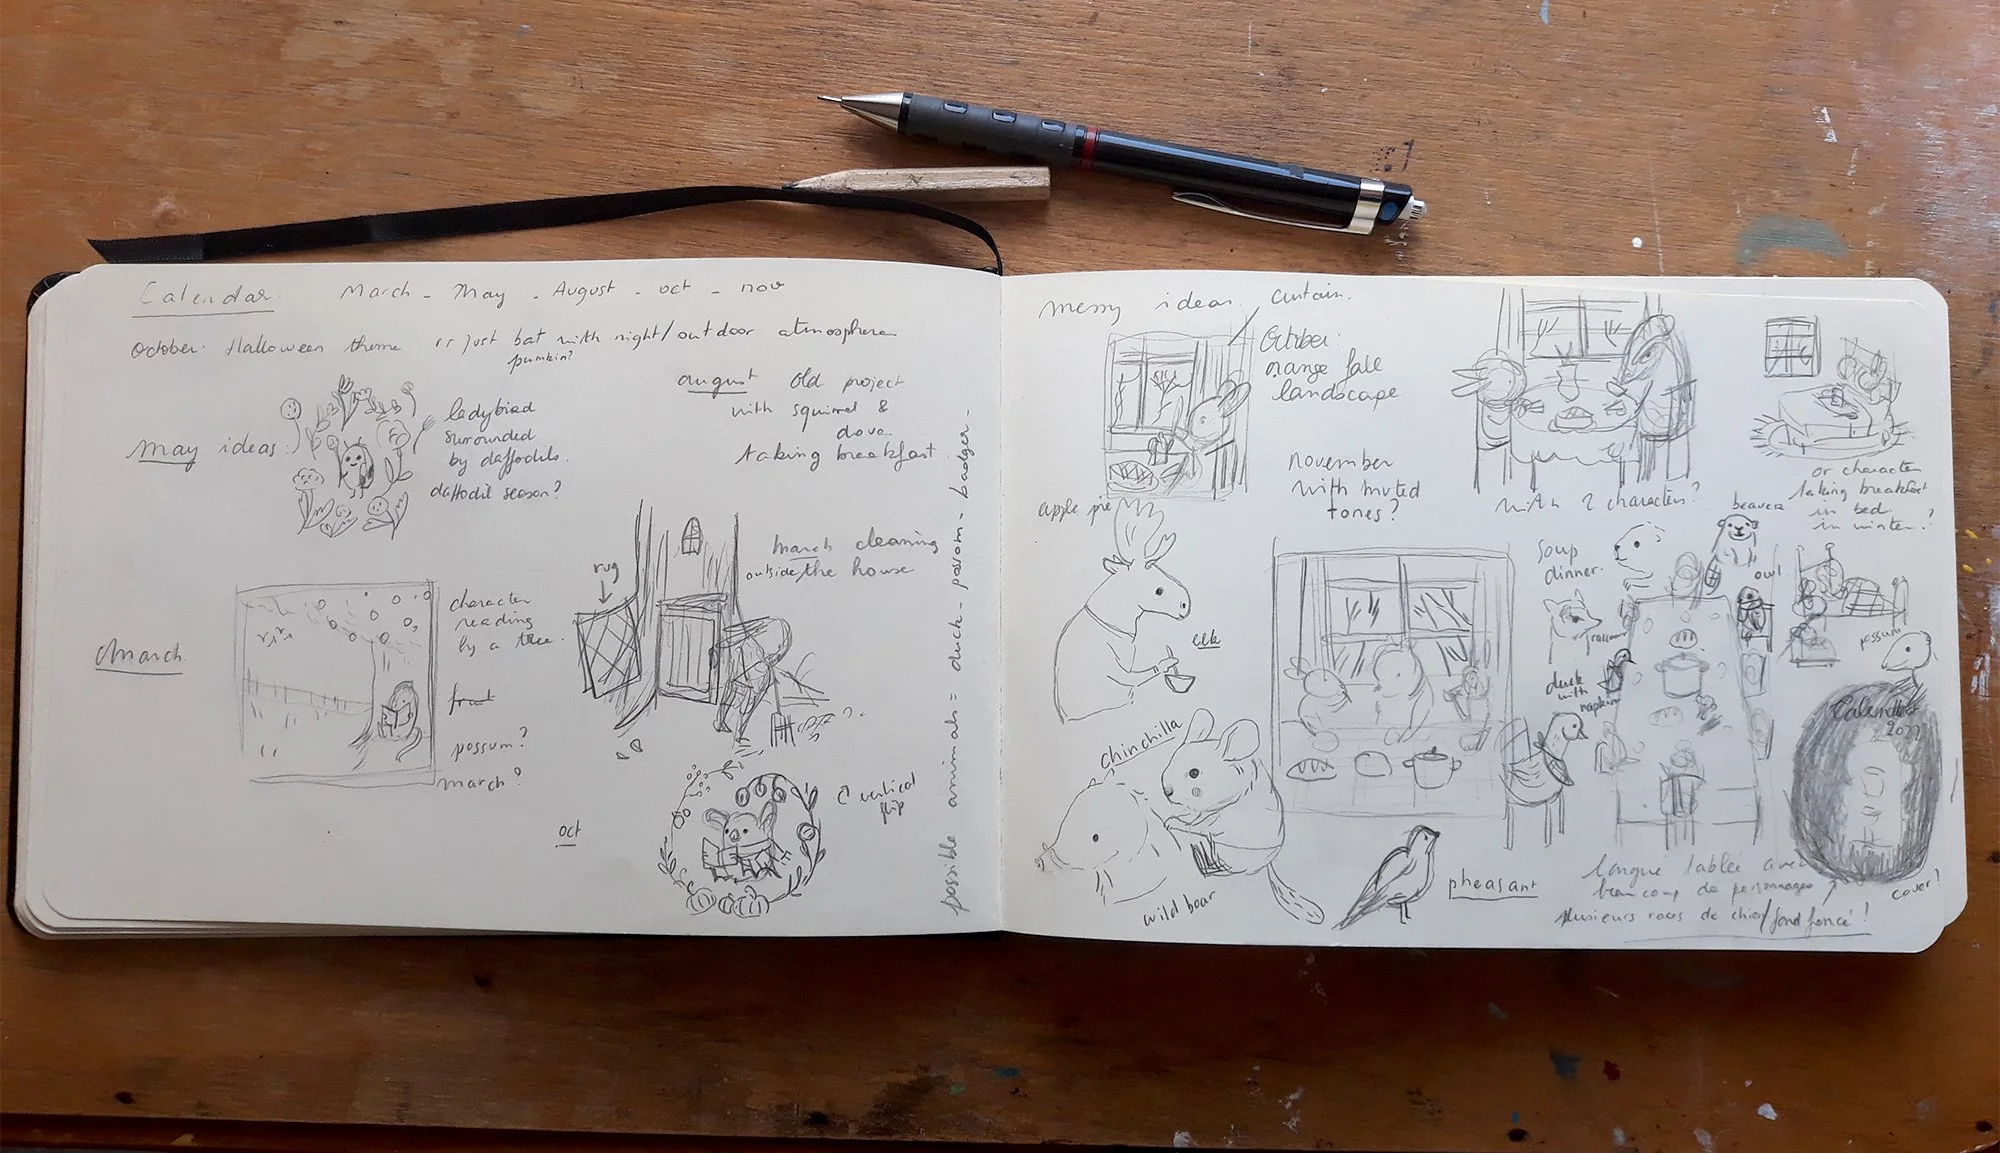 Calendar March - May - August - oct - nov
October: Halloween theme or just bat with night/outdoor atmosphere
pumkin?
may ideas:
ladybird
surrounded
by daffodils.
daffodil season?
august old project
with squirrel &
dove
taking breakfast
rug
march cleaning
outside the house
March
character
reading
by a tree.
possum?
march?
oct
vertical
flip
possible animals = duck - possom - badger -
messy ideas. curtain.
October:
orange fall
landscape
apple pie
november
with muted
tones?
with 2 characters?
or character
taking breakfast
in bed
in winter?
elk
soup
dinner.
beaver
owl
raccoon
possum
duck
with
napkin
chinchilla
wild boar
pheasant
Calendar
2022
cover?
longue tablée avec
beaucoup de personnages?
plusieurs races de chien/fond foncé!